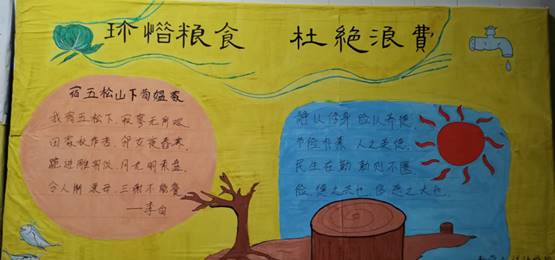 珍惜粮食 杜絶浪費
宿五松山下荀媪家
我宿五松下,寂寥无所欢
田家秋作苦,邻女夜舂寒
跪进雕胡饭,月光明素盘
令人惭漂母,三谢不能餐
——李白
静以修身 俭以养德。
节俭朴素 人之美德。
民生在勤 勤则不匮
俭,德之共也,侈,恶之大也。